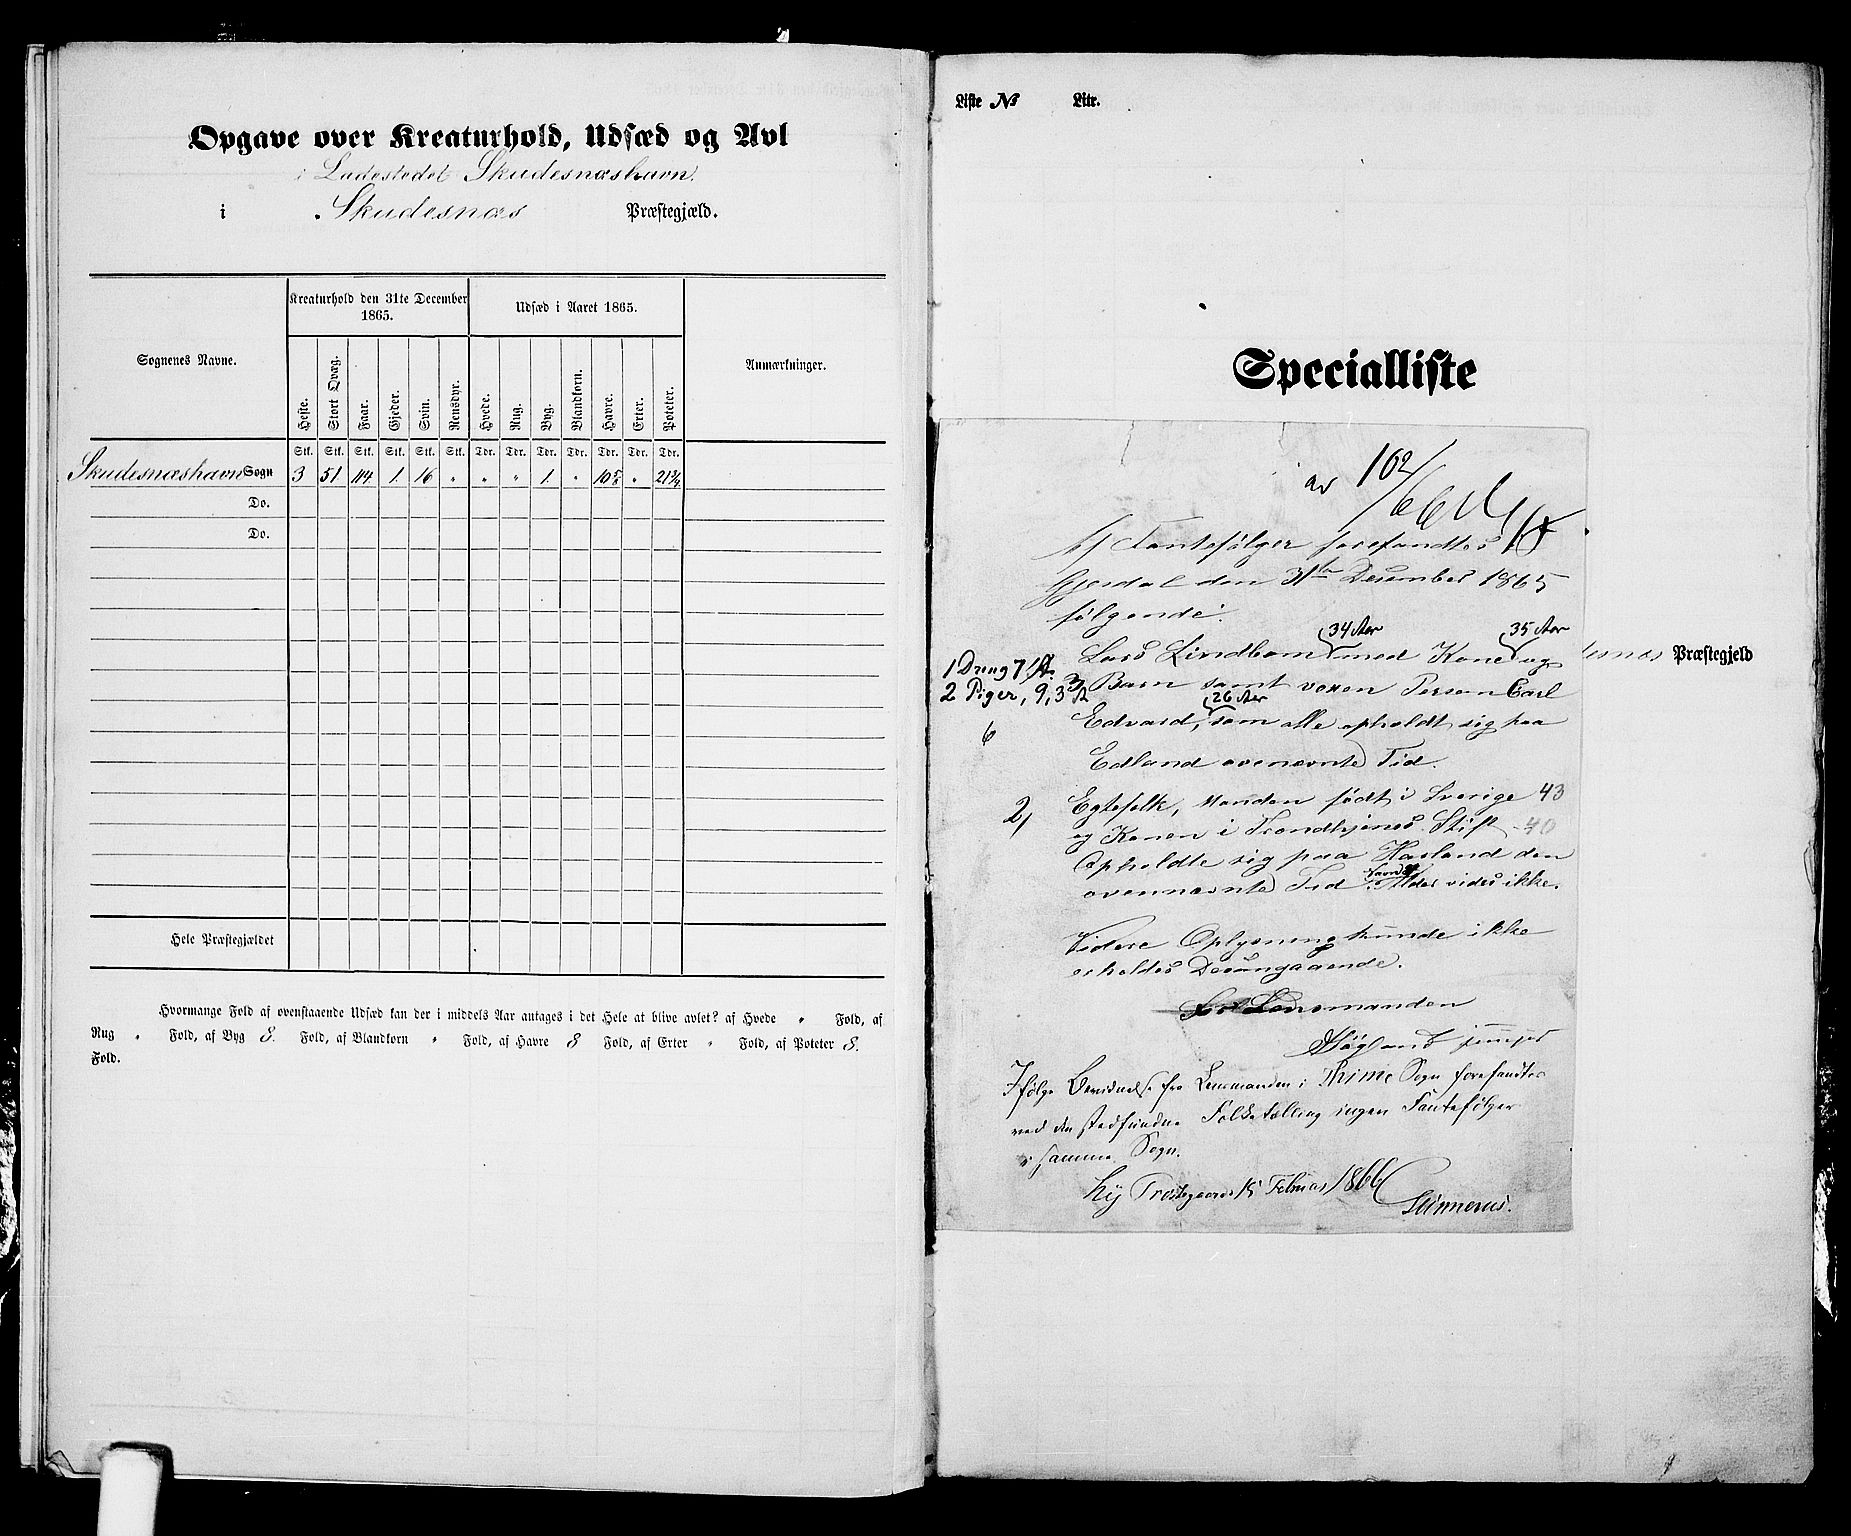 Opgave over Kreaturhold, Udsæd og Avl
i Ladestedet Skudesnæshavn.
i Skudesnæs Præstegjæld.
Sognenes Navne.
Kreaturhold den 31te December 1865.
Udsæd i Aaret 1865.
Anmærkninger.
Heste. Stort Qvæg. Faar. Gjeder. Svin. Rensdyr. Hvede. Rug. Byg. Blandkorn. Havre. Erter. Poteter.
Stk. Stk. Stk. Stk. Stk. Stk. Tdr. Tdr. Tdr. Tdr. Tdr. Tdr. Tdr.
Skudesnæshavn Sogn 3 51 114 1. 16 " " " 1. " 10 " 21¾
Do.
Do.
Hele Præstegjældet
Hvormange Fold af ovenstaaende Udsæd kan der i middels Aar antages i det Hele at blive avlet? af Hvede " Fold, af
Rug " Fold, af Byg 8. Fold, af Blandkorn " Fold, af Havre 8 Fold, af Erter " Fold, af Poteter 8.
Fold.
Liste № Litr.
Specialliste
102/66
Af Fantefølger forefandtes i
Gjesdal den 31te Desember 1865
følgende:
34 Aar 35 Aar
Lars Lindbom med Kone og
1 Dreng 7 A
3 Barn samt voxen Person Carl
2 Piger, 9, 3 A
26 Aar
Edvard, som alle opholdt sig paa
6
Edland ovenævnte Tid.
2, Egtefolk, Manden født i Sverige 43
og Konen i Trondhjems Stift 40
Opholdte sig paa Hasland den
Navn og
ovennævnte Tid. Alder vides ikke.
Videre Oplysning kunde ikke
erholdes Desangaaende.
For Lensmanden
Høgland junior
Ifølge Beretnelse fra Lensmanden i Thime Sogn forefandtes
ved den stedfundne Folketælling ingen Fantefølger
i samme Sogn.
Ly Præstegaard 15 Februar 1866
Gunnerus.
esnæs Præstegjeld